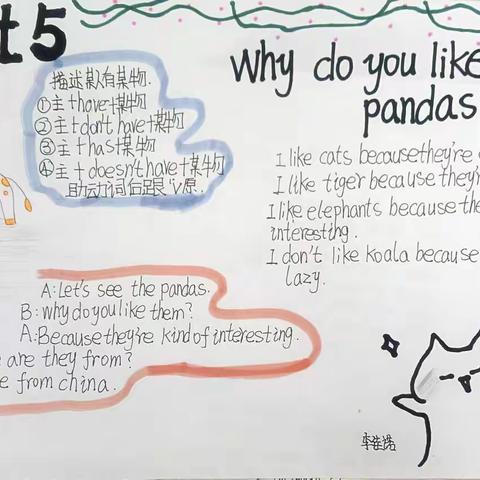 t5
Why do you like
pandas
描述某有某物.
①主+have+某物
②主+don't have+某物
③主+has+某物
④主+doesn't have+某物
助动词后跟V原.
I like cats because they're
I like tiger because they'r
I like elephants because the
interesting.
I don't like koala because
lazy.
A: Let's see the pandas.
B: why do you like them?
A: Because they're kind of interesting.
e are they from?
e from china.